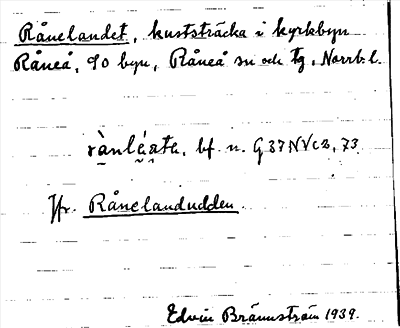 Rånelandet, kuststräcka i kyrkbyn
Råneå, 90 byn, Råneå sn och tg, Norrb. l.
bf. n. G 37 NV c2, 73.
Jfr. Rånelandudden.
Edvin Brännström 1939.